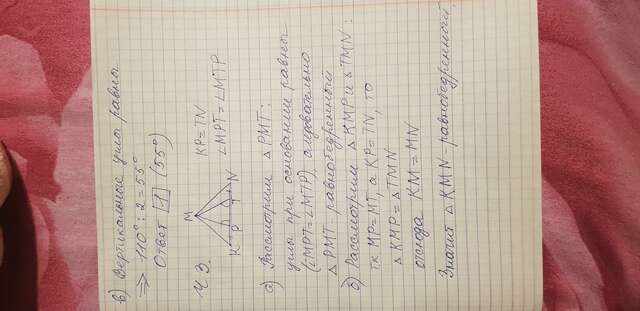 в) Вертикальные углы равны
⇒ 110° : 2 = 55°
Ответ 1 (55°)
ч 3.
M
K P T N
KP = TN
∠MPT = ∠MTP
а) Рассмотрим △ PMT:
углы при основании равны
(∠MPT = ∠MTP), следовательно
△ PMT равнобедренный
б) Рассмотрим △ KMP и △ TMN:
тк MP = MT, а KP = TN, то
△ KMP = △ TMN
отсюда KM = MN
Значит △ KMN - равнобедренный